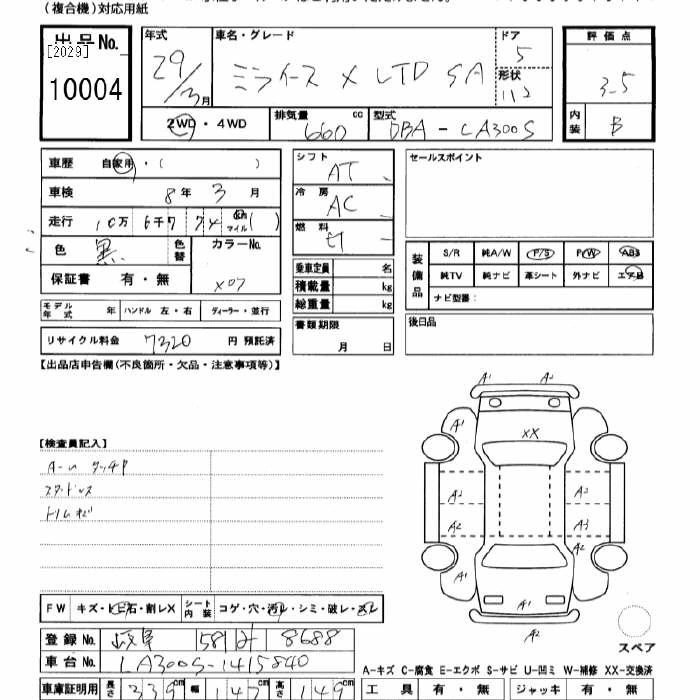 (複合機)対応用紙
出品No. [2029] 10004
年式 29/3月
車名・グレード ミライース X LTD SA
ドア 5
形状
評価点 3.5
内装 B
2WD・4WD
排気量 660 cc
型式 DBA-LA300S
車歴 自家用・( )
車検 8年 3月
走行 10万 6千7 74 km マイル( )
色 黒 色替
カラーNo. X07
保証書 有・無
モデル年式 年 ハンドル 左・右 ディーラー・並行
リサイクル料金 7320 円 預託済
シフト AT
冷房 AC
燃料
乗車定員 名
積載量 kg
総重量 kg
書類期限 月 日
セールスポイント
装備品 S/R 純A/W P/S P/W ABS
純TV 純ナビ 革シート 外ナビ エアB
ナビ型番:
後日品
【出品店申告欄(不良箇所・欠品・注意事項等)】
【検査員記入】
A1 A2
A1
XX
A2 A2
A2 A3
A2
A1 A1
A2
スペア
FW キズ・ヒビ石・割レX シート内装 コゲ・穴・汚レ・シミ・破レ・スレ
登録No. 岐阜 581 8688
車台No. LA300S-1415840
車庫証明用 長さ 339cm 幅 147cm 高さ 149cm
A-キズ C-腐食 E-エクボ S-サビ U-凹ミ W-補修 XX-交換済
工具 有・無 ジャッキ 有・無